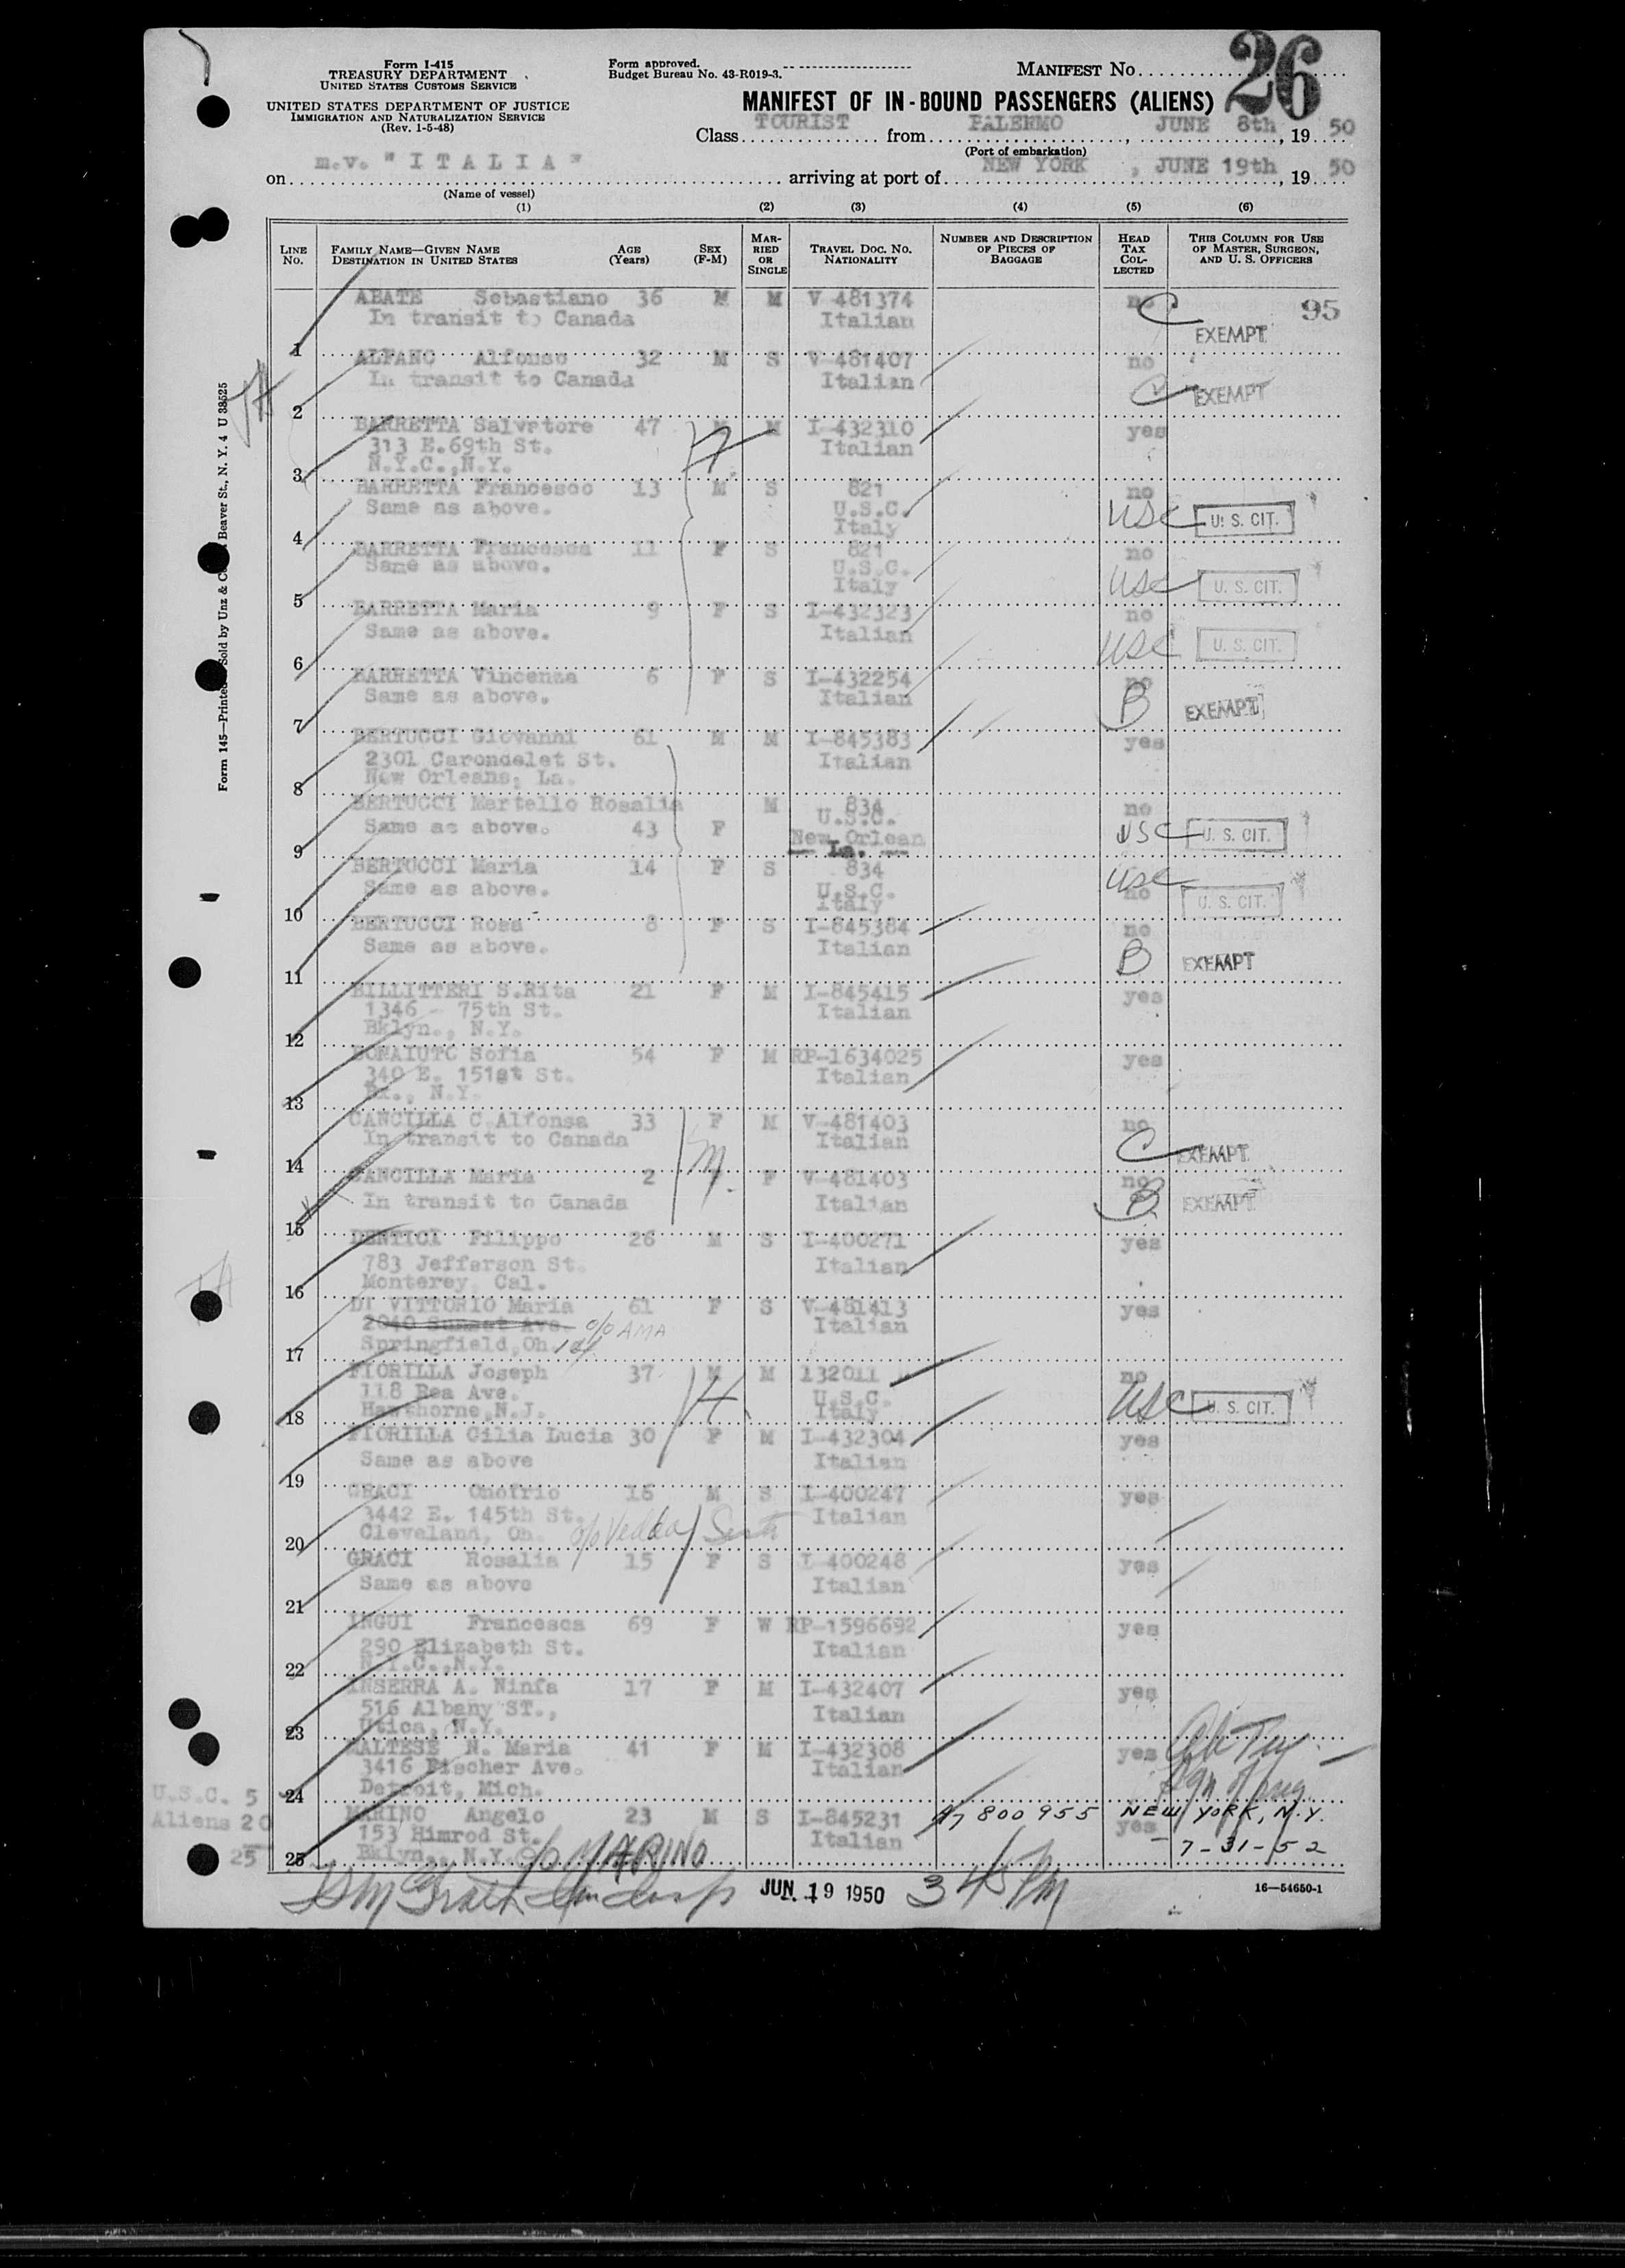 26
Form I-415
TREASURY DEPARTMENT
UNITED STATES CUSTOMS SERVICE
UNITED STATES DEPARTMENT OF JUSTICE
IMMIGRATION AND NATURALIZATION SERVICE
(Rev. 1-5-48)
Form approved.
Budget Bureau No. 43-R019-3.
MANIFEST No.
MANIFEST OF IN-BOUND PASSENGERS (ALIENS)
Class TOURIST from PALERMO, JUNE 8th, 19 50
(Port of embarkation)
on m.v. "ITALIA" arriving at port of NEW YORK, JUNE 19th, 19 50
(Name of vessel)
(1) (2) (3) (4) (5) (6)
LINE NO. FAMILY NAME—GIVEN NAME DESTINATION IN UNITED STATES AGE (Years) SEX (F-M) MARRIED OR SINGLE TRAVEL DOC. NO. NATIONALITY NUMBER AND DESCRIPTION OF PIECES OF BAGGAGE HEAD TAX COLLECTED THIS COLUMN FOR USE OF MASTER, SURGEON, AND U. S. OFFICERS
ABATE Sebastiano 36 M M V 481374 no C 95
In transit to Canada Italian EXEMPT
1
ALFANO Alfonso 32 M S V-481407 no
In transit to Canada Italian C EXEMPT
2
BARRETTA Salvatore 47 M M I-432310 yes
313 E.69th St. Italian
N.Y.C.,N.Y.
3
BARRETTA Francesco 13 M S 821 no
Same as above. U.S.C. USC U. S. CIT.
Italy
4
BARRETTA Francesca 11 F S 821 no
Same as above. U.S.C.
Italy USC U. S. CIT.
5
BARRETTA Maria 9 F S I-432323 no
Same as above. Italian USC U. S. CIT.
6
BARRETTA Vincenza 6 F S I-432254 no
Same as above. Italian B EXEMPT
7
BERTUCCI Giovanni 61 M M I-845383 yes
2301 Carondelet St. Italian
New Orleans, La.
8
BERTUCCI Martello Rosalia M 834 no
Same as above. 43 F U.S.C. USC U. S. CIT.
New Orlean
La.
9
BERTUCCI Maria 14 F S 834 USC
Same as above. U.S.C. no U. S. CIT.
Italy
10
BERTUCCI Rosa 8 F S I-845384 no
Same as above. Italian B EXEMPT
11
BILLITTERI S.Rita 21 F M I-845415 yes
1346 - 75th St. Italian
Bklyn., N.Y.
12
BONAIUTO Sofia 54 F M RP-1634025 yes
340 E. 151st St. Italian
Bx., N.Y.
13
CANCILLA C.Alfonsa 33 F M V-481403 no
In transit to Canada Italian C EXEMPT
14
CANCILLA Maria 2 F V-481403 no
In transit to Canada Italian B EXEMPT
15
DENTICI Filippo 26 M S I-400271 yes
783 Jefferson St. Italian
Monterey, Cal.
16
DI VITTORIO Maria 61 F S V-481413 yes
2040 Sunset Ave. c/o AMA Italian
Springfield,Oh.
17
FIORILLA Joseph 37 M M 132011 no
118 Rea Ave. U.S.C. USC U. S. CIT.
Hawthorne,N.J. Italy
18
FIORILLA Cilia Lucia 30 F M I-432304 yes
Same as above Italian
19
GRACI Onofrio 16 M S I-400247 yes
3442 E. 145th St. Italian
Cleveland, Oh.
20
GRACI Rosalia 15 F S I 400248 yes
Same as above Italian
21
INGUI Francesca 69 F W RP-1596692 yes
290 Elizabeth St. Italian
N.Y.C.,N.Y.
22
INSERRA A. Ninfa 17 F M I-432407 yes
516 Albany ST., Italian
Utica, N.Y.
23
MALTESE N. Maria 41 F M I-432308 yes
3416 Fischer Ave. Italian
Detroit, Mich.
24
MARINO Angelo 23 M S I-845231 A7 800 955 yes NEW YORK, N.Y.
153 Himrod St. Italian 7-31-52
Bklyn., N.Y. c/o MARINO
25
U.S.C. 5
Aliens 20
25
JUN 19 1950 3 45 PM
16—54650-1
Form 145—Printed Sold by Unz & Co Beaver St., N. Y. 4 U 38525